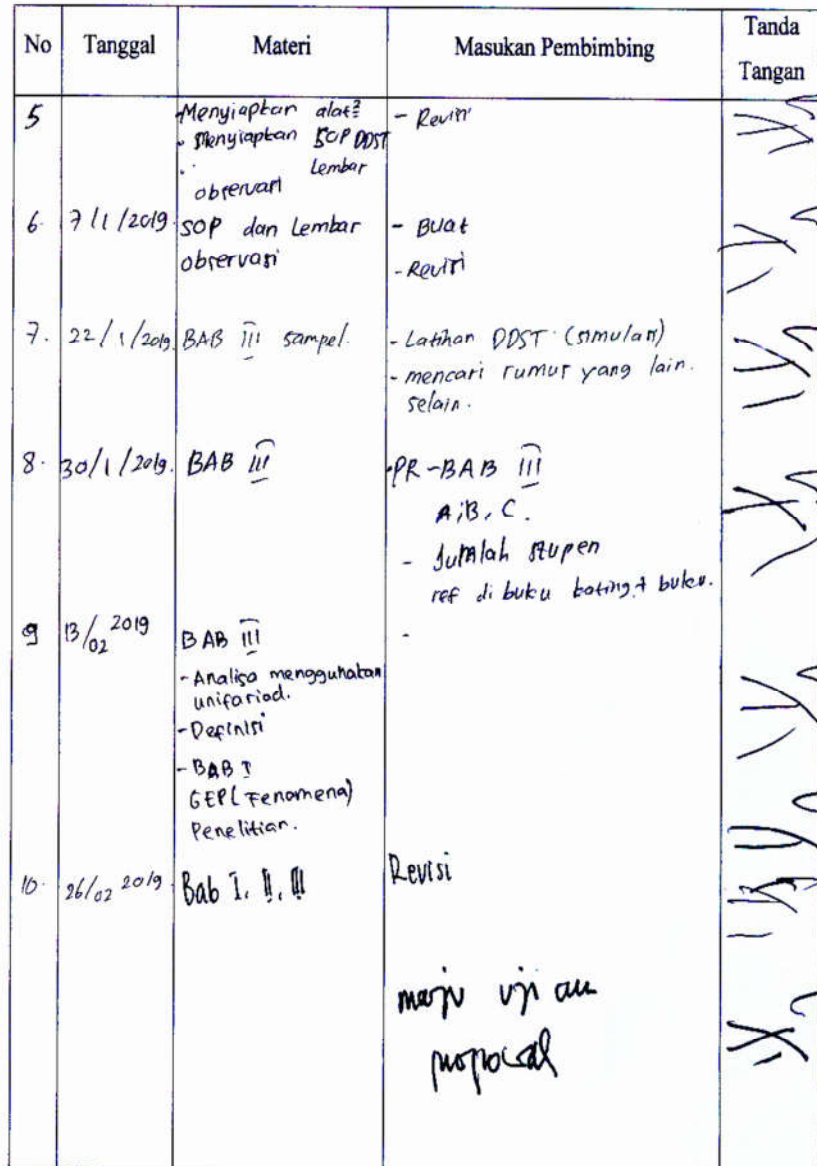 No Tanggal Materi Masukan Pembimbing Tanda Tangan
5 - Menyiapkan alat² - Revisi
- Menyiapkan SOP DDST
lembar
observasi
6. 7/1/2019 SOP dan Lembar - Buat
observasi - Revisi
7. 22/1/2019. BAB III sampel. - Latihan DDST (simulasi)
- mencari rumus yang lain.
selain.
8. 30/1/2019. BAB III PR - BAB III
A, B, C.
- Jumlah
ref di buku + buku.
9 13/02 2019 BAB III -
- Analisa menggunakan
unifariad.
- Definisi
- BAB I
GEP (Fenomena)
Penelitian.
10. 26/02 2019 Bab I, II, III Revisi
maju ujian
proposal